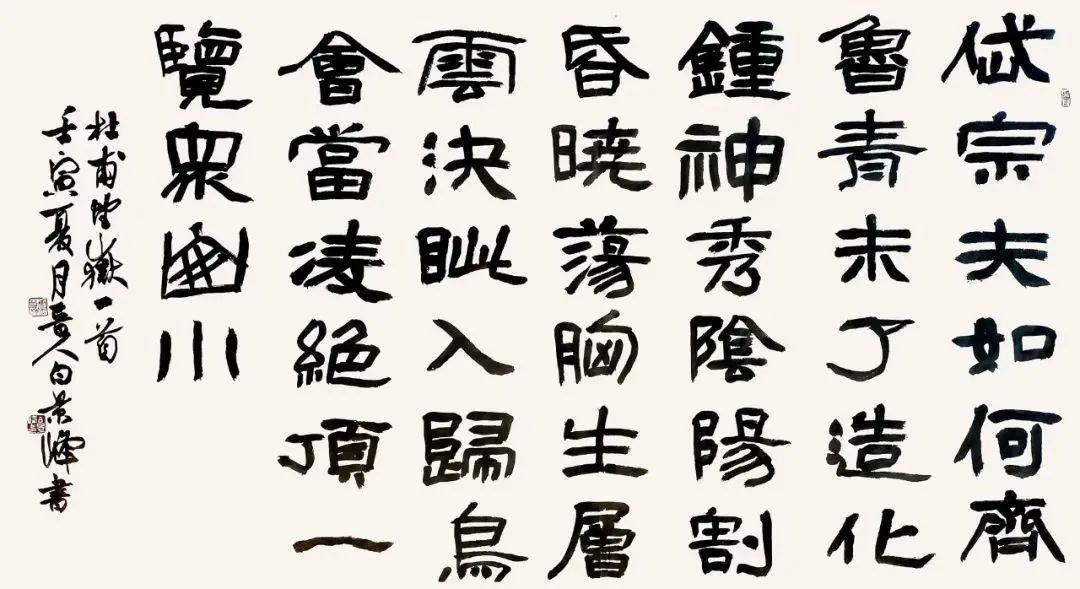 岱宗夫如何齊
魯青未了造化
鍾神秀陰陽割
昏曉蕩胸生層
雲決眦入歸鳥
會當凌絕頂一
覽眾山小
杜甫望嶽一首
壬寅夏月晉人白景峰書